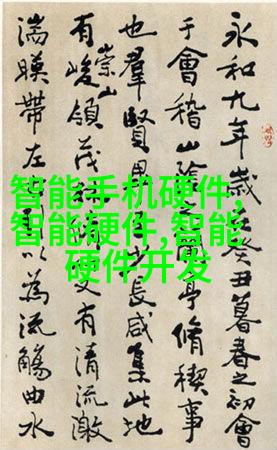 永和九年歲癸丑暮春之初會
于會稽山陰之蘭亭脩稧事
也羣賢畢長咸集此地
有崇山峻領茂又有清流激
湍暎帶左以為流觴曲水
智能手机硬件,
智能硬件,智能
硬件开发